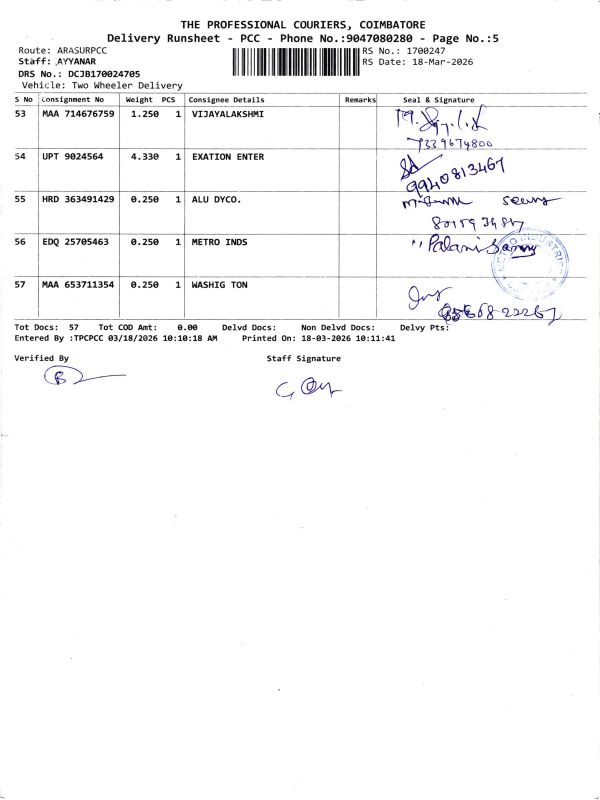 THE PROFESSIONAL COURIERS, COIMBATORE
Delivery Runsheet - PCC - Phone No.:9047080280 - Page No.:5
Route: ARASURPCC RS No.: 1700247
Staff: AYYANAR RS Date: 18-Mar-2026
DRS No.: DCJB170024705
Vehicle: Two Wheeler Delivery
S No Consignment No Weight PCS Consignee Details Remarks Seal & Signature
53 MAA 714676759 1.250 1 VIJAYALAKSHMI
7339674800
54 UPT 9024564 4.330 1 EXATION ENTER
9940813467
55 HRD 363491429 0.250 1 ALU DYCO.
56 EDQ 25705463 0.250 1 METRO INDS Palani Samy
57 MAA 653711354 0.250 1 WASHIG TON
Tot Docs: 57 Tot COD Amt: 0.00 Delvd Docs: Non Delvd Docs: Delvy Pts:
Entered By :TPCPCC 03/18/2026 10:10:18 AM Printed On: 18-03-2026 10:11:41
Verified By Staff Signature